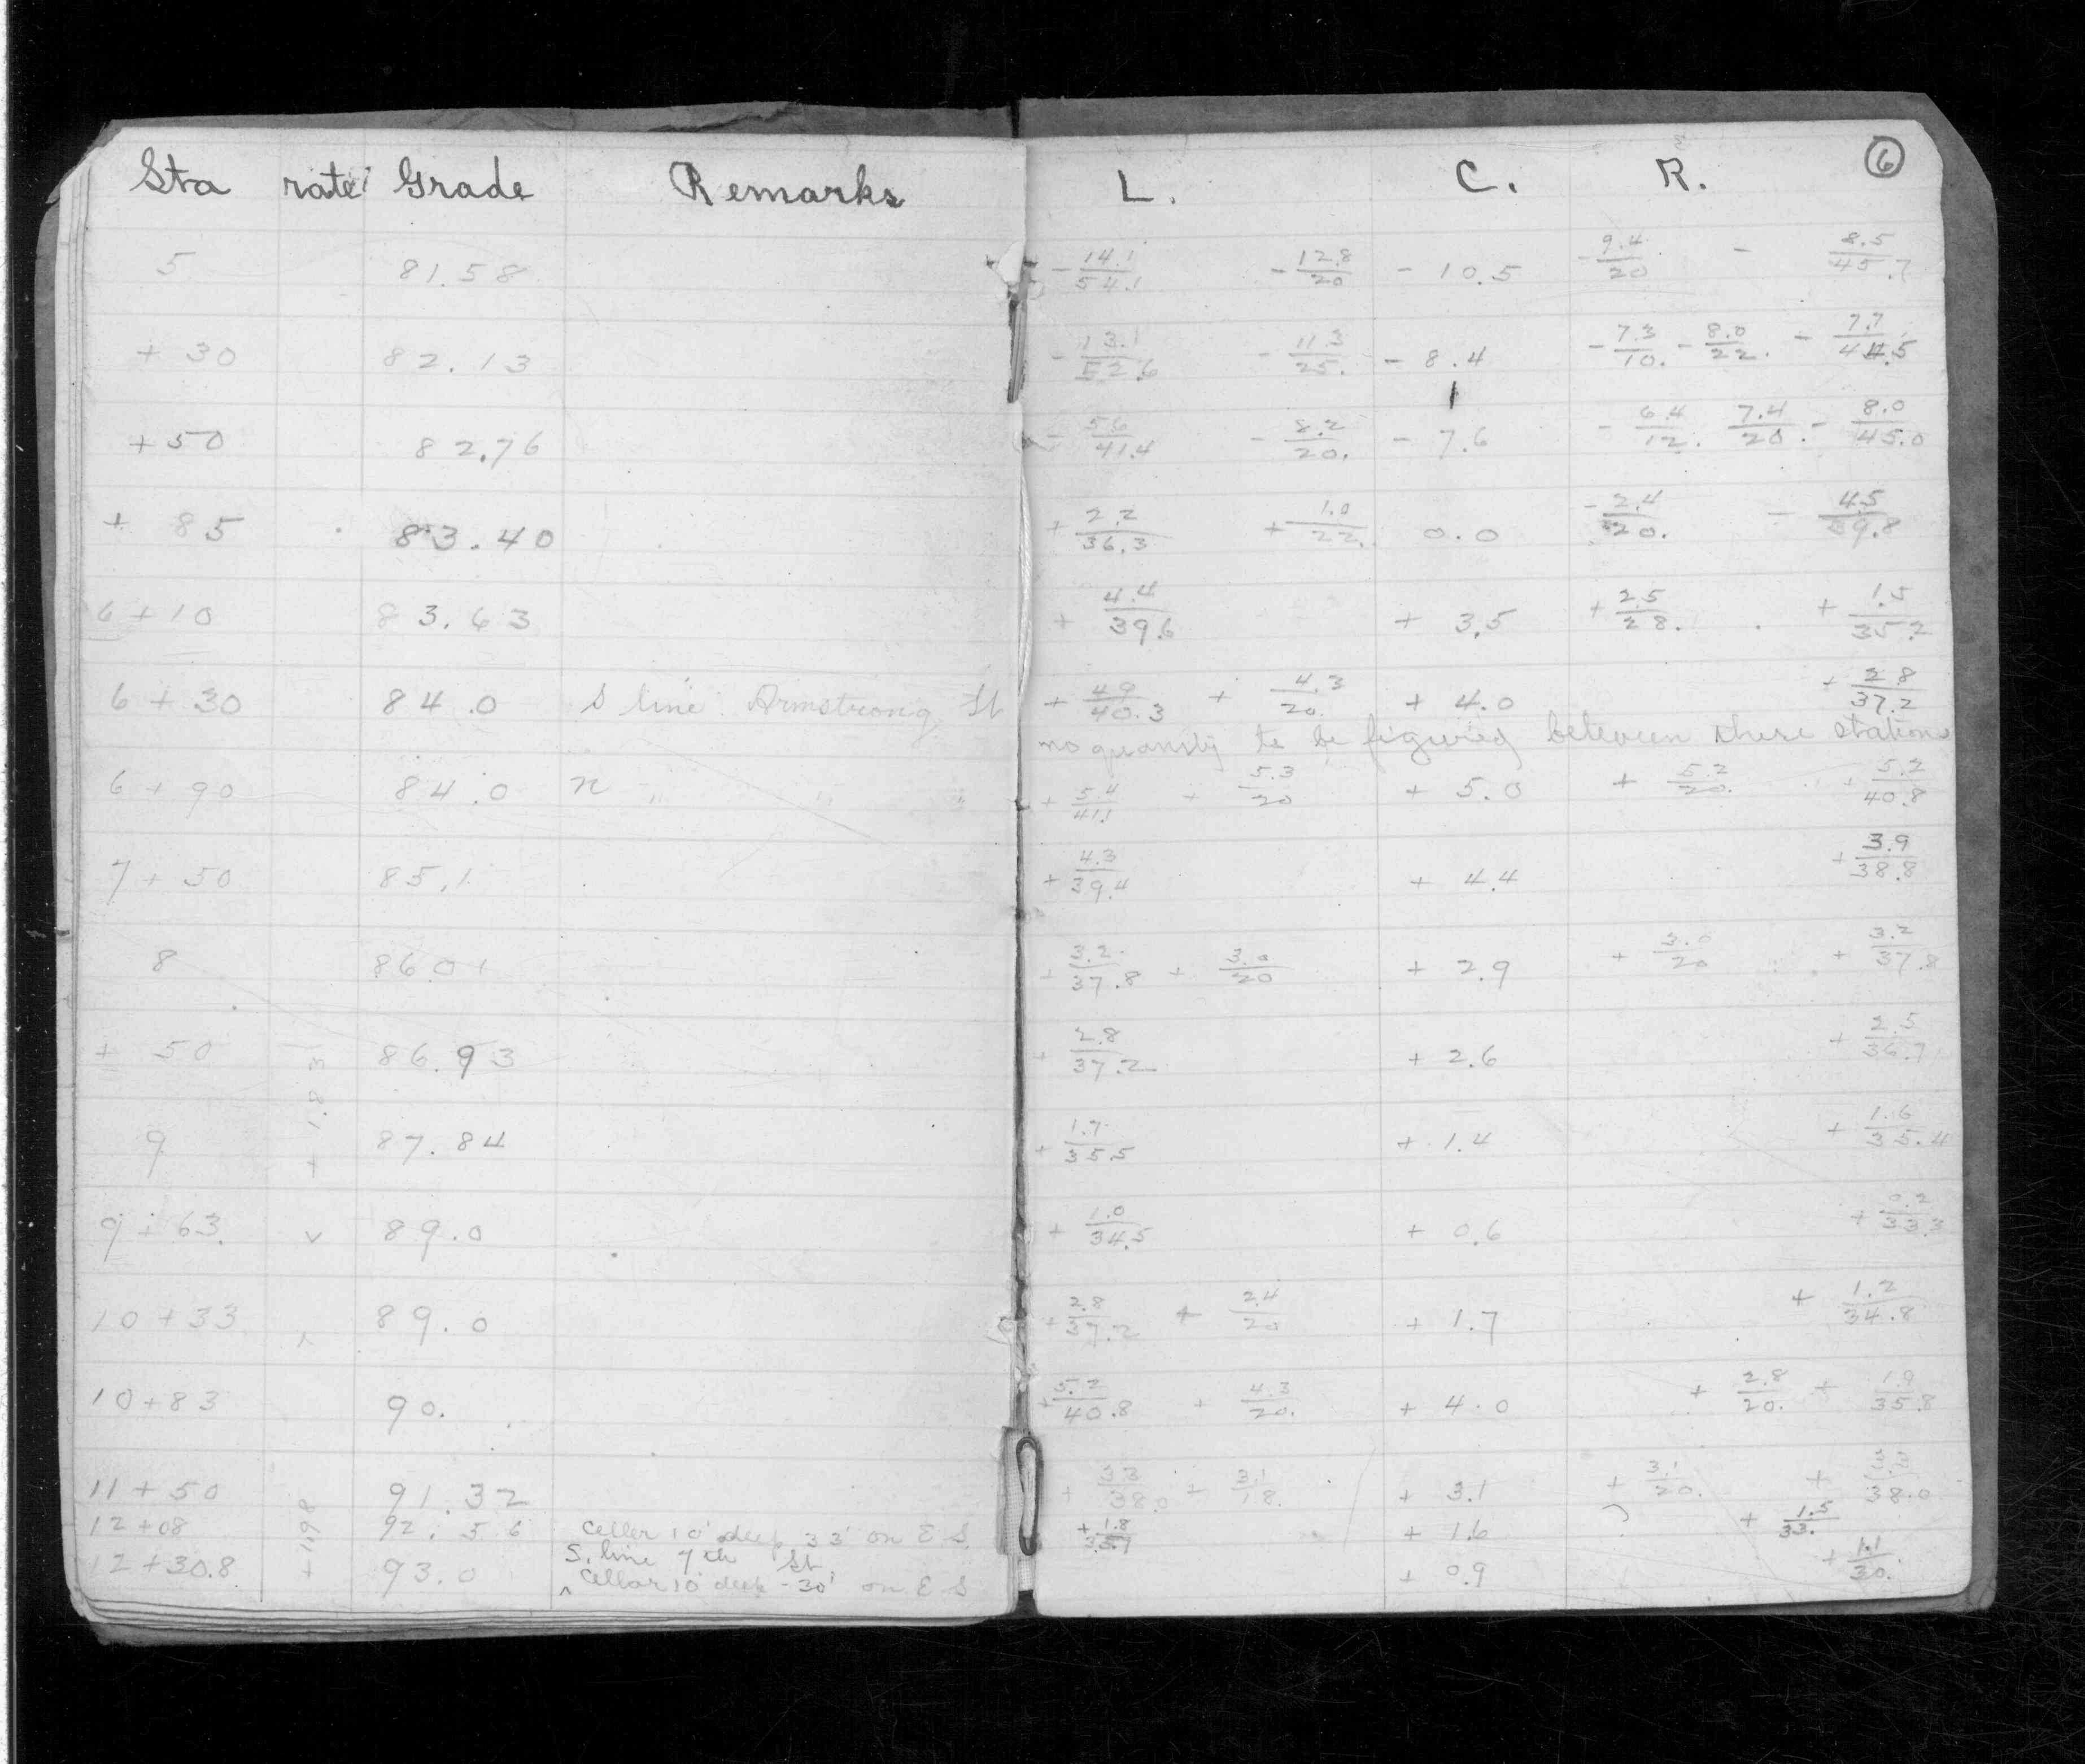 Sta rate Grade Remarks L. C. R. 6
5 81.58 - 14.1/54.1 - 12.8/20 - 10.5 - 9.4/20 - 8.5/45.7
+ 30 82.13 - 13.1/52.6 - 11.3/25. - 8.4 - 7.3/10. - 8.0/22. - 7.7/44.5
+ 50 82.76 - 5.6/41.4 - 8.2/20. - 7.6 - 6.4/12. 7.4/20. - 8.0/45.0
+ 85 83.40 + 2.2/36.3 + 1.0/22. 0.0 - 2.4/20. - 4.5/39.8
6 + 10 83.63 + 4.4/39.6 + 3.5 + 2.5/28. + 1.5/35.2
6 + 30 84.0 S line Armstrong St + 4.9/40.3 + 4.3/20. + 4.0 + 2.8/37.2
no quantity to be figured between these stations
6 + 90 84.0 N " " " + 5.4/41.1 + 5.3/20 + 5.0 + 5.2/20. + 5.2/40.8
7 + 50 85.1 + 4.3/39.4 + 4.4 + 3.9/38.8
8 86.01 + 3.2/37.8 + 3.0/20 + 2.9 + 3.0/20 + 3.2/37.8
+ 50 86.93 + 2.8/37.2 + 2.6 + 2.5/36.7
9 + 1.83 87.84 + 1.7/35.5 + 1.4 + 1.6/35.4
9 + 63. v 89.0 + 1.0/34.5 + 0.6 + 0.2/33.3
10 + 33 89.0 + 2.8/37.2 + 2.4/20 + 1.7 + 1.2/34.8
10 + 83 90. + 5.2/40.8 + 4.3/20. + 4.0 + 2.8/20. + /35.8
11 + 50 91.32 + 3.3/38.0 + 3.1/18. + 3.1 + 3.1/20. + 3.3/38.0
12 + 08 + 1.98 92.56 Celler 10' deep 33' on E S. + 1.8 + 1.6 + 1.5/33.
12 + 30.8 93.0 S. line 7th St + 0.9 + 1.1/30.
Cellar 10' deep - 30' on E S